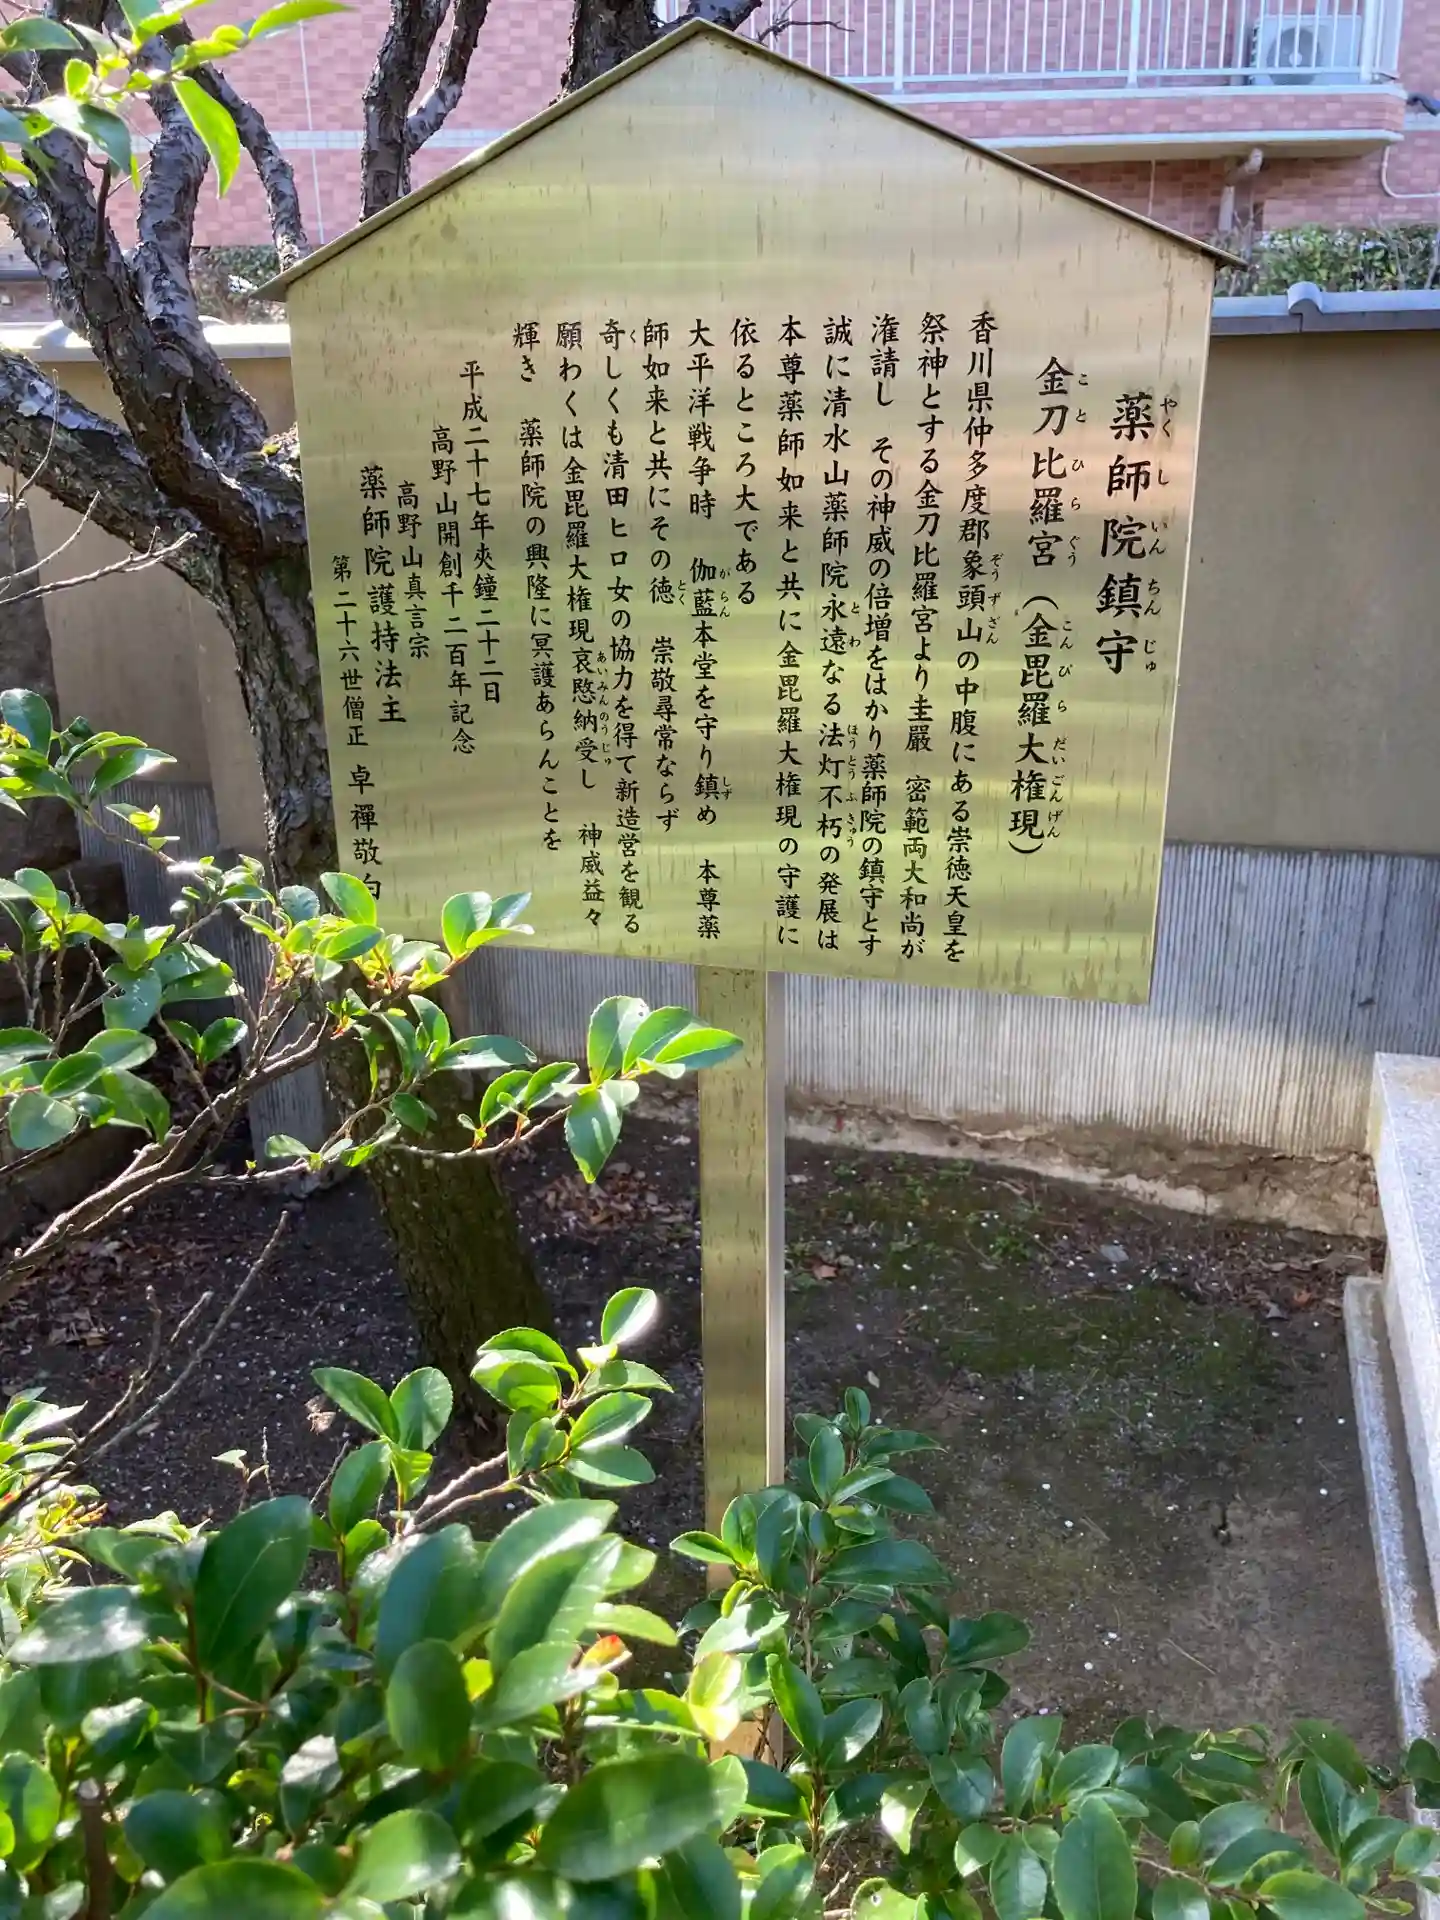 薬師院鎮守
金刀比羅宮（金毘羅大権現）
香川県仲多度郡象頭山の中腹にある崇徳天皇を
祭神とする金刀比羅宮より圭嚴　密範両大和尚が
潅請し　その神威の倍増をはかり薬師院の鎮守とす
誠に清水山薬師院永遠なる法灯不朽の発展は
本尊薬師如来と共に金毘羅大権現の守護に
依るところ大である
大平洋戦争時　伽藍本堂を守り鎮め　本尊薬
師如来と共にその徳　崇敬尋常ならず
奇しくも清田ヒロ女の協力を得て新造営を観る
願わくは金毘羅大権現哀愍納受し　神威益々
輝き　薬師院の興隆に冥護あらんことを
平成二十七年夾鐘二十二日
高野山開創千二百年記念
高野山真言宗
薬師院護持法主
第二十六世僧正　卓禪敬白